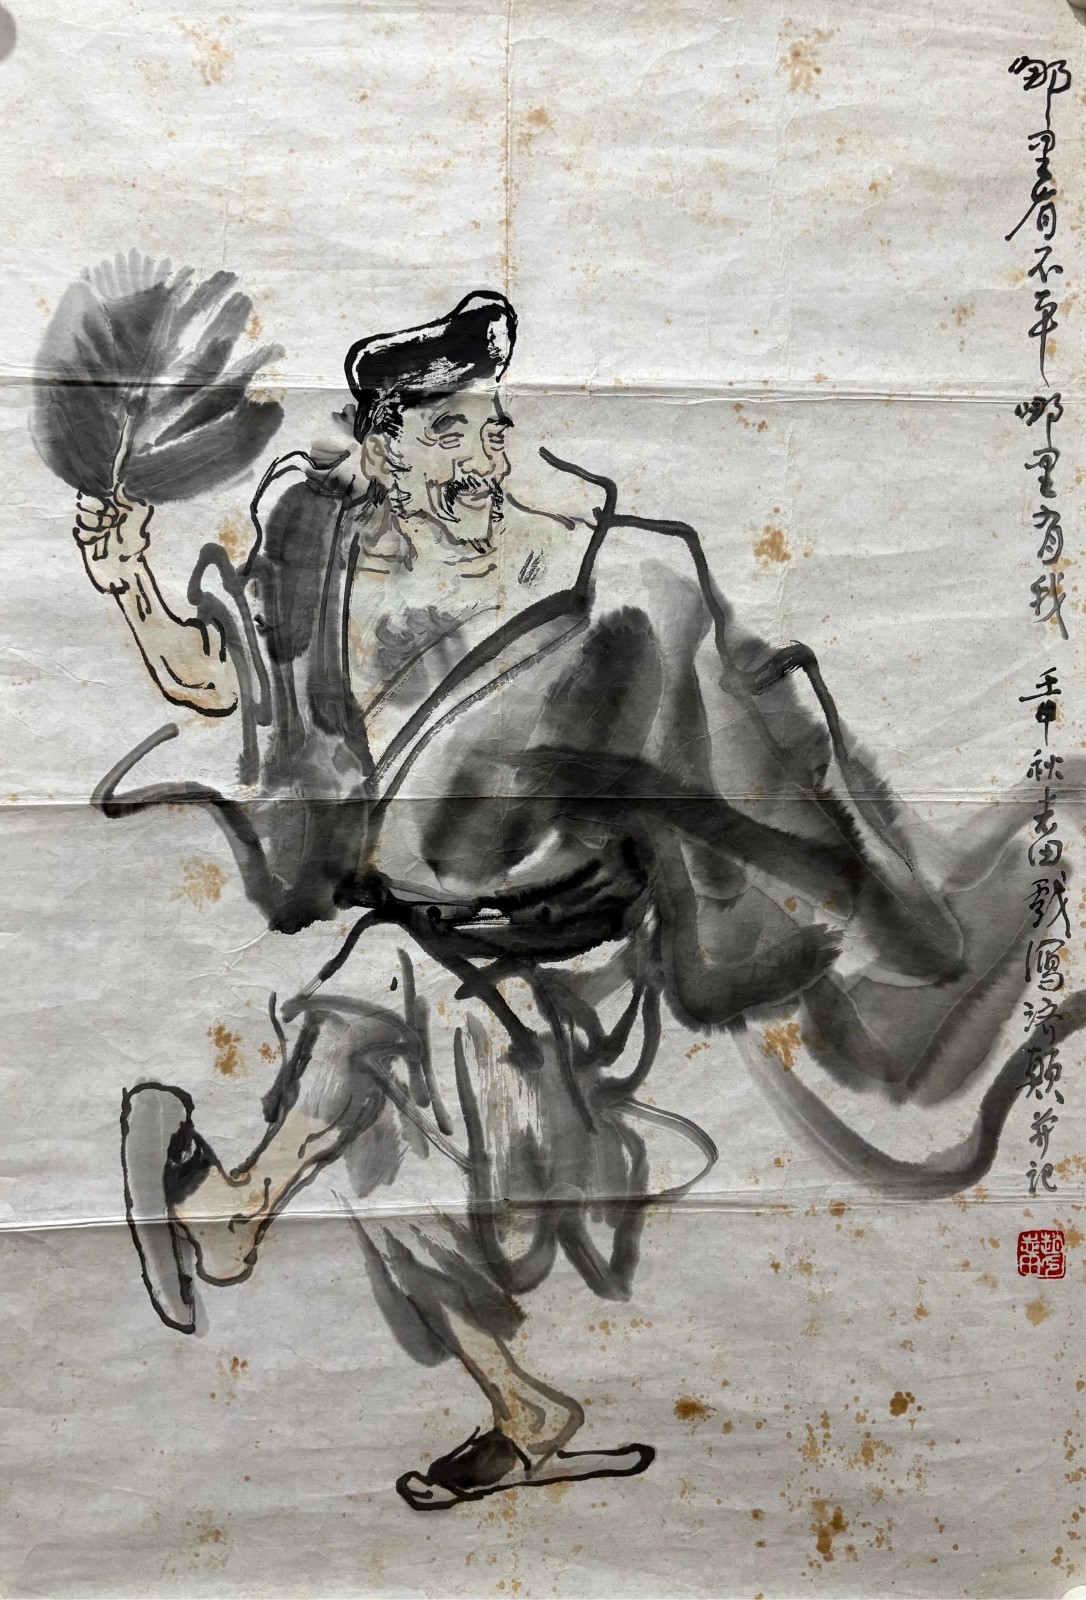 哪里有不平哪里有我 壬申秋老田戏写济颠并记